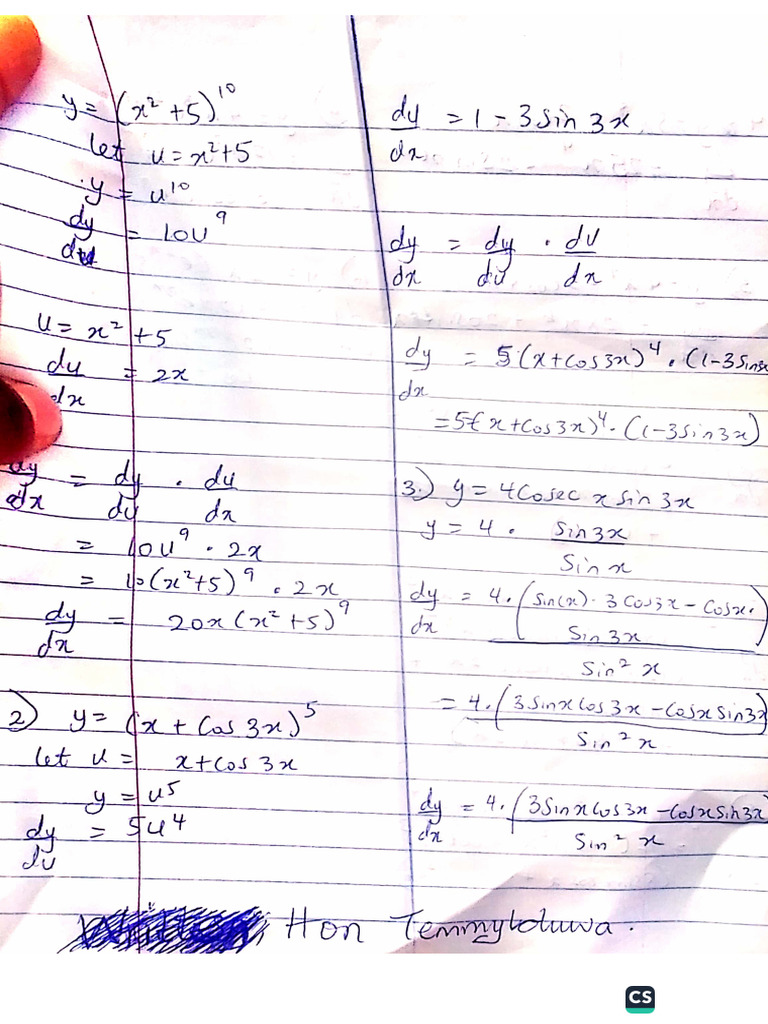 y = (x² + 5)¹⁰
let u = x² + 5
y = u¹⁰
dy/du = 10u⁹
u = x² + 5
du/dx = 2x
dy/dx = dy/du · du/dx
= 10u⁹ · 2x
= 10(x² + 5)⁹ · 2x
dy/dx = 20x(x² + 5)⁹
2) y = (x + Cos 3x)⁵
let u = x + cos 3x
y = u⁵
dy/du = 5u⁴
dy/dx = 1 - 3 Sin 3x
dy/dx = dy/du · du/dx
dy/dx = 5(x + cos 3x)⁴ · (1 - 3 Sin 3x
= 5(x + Cos 3x)⁴ · (1 - 3 Sin 3x)
3.) y = 4 Cosec x sin 3x
y = 4 · Sin 3x / Sin x
dy/dx = 4 · (Sin(x) · 3 Cos 3x - Cos x · Sin 3x / Sin² x
= 4 · (3 Sin x Cos 3x - Cos x Sin 3x / Sin² x
dy/dx = 4 · (3 Sin x Cos 3x - Cos x Sin 3x / Sin² x
Hon Temmyloluwa.
CS